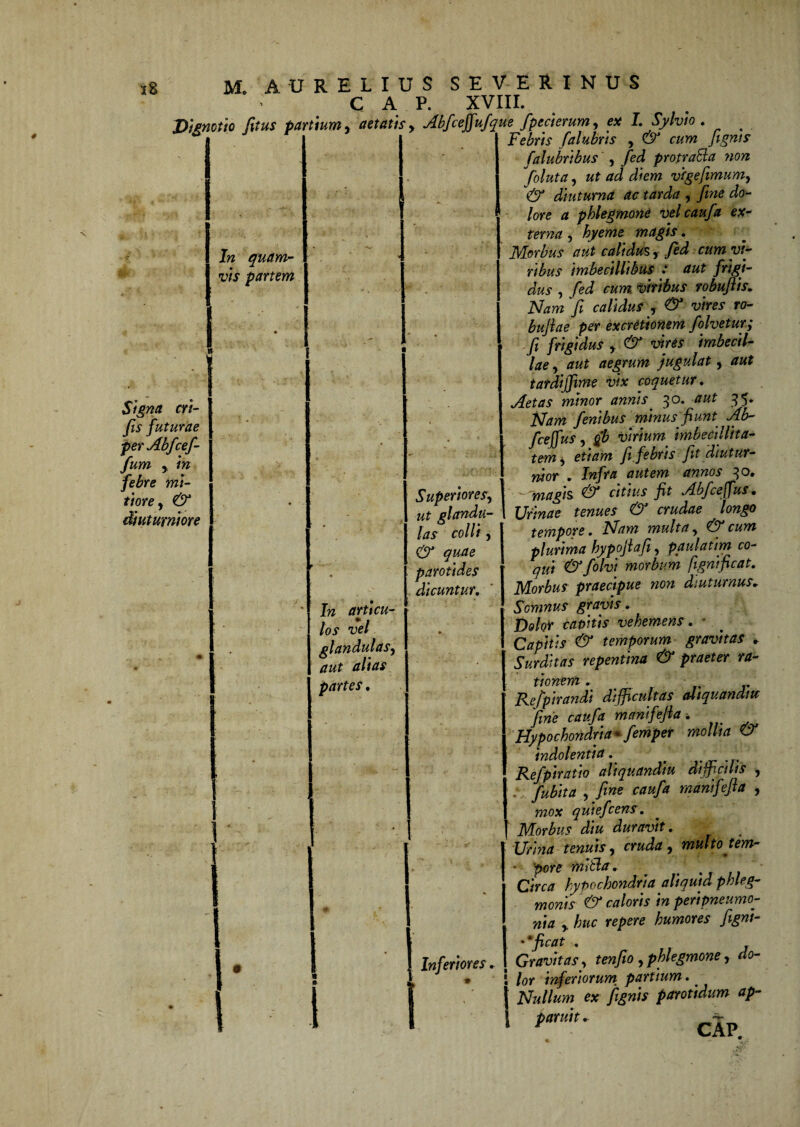 18 M. AURELIUS SEVERINUS
CAP. XVIII.
Dignotio ſitus partium, aetatis, Abſceſſuſque ſpecierum, ex I. Sylvio.
Signa cri-
ſis futurae
per Abſceſ-
ſum, in
febre mi-
tiore, &
diuturniore
In quam-
vis partem
In articu-
los vel
glandulas,
aut alias
partes.
Superiores,
ut glandu-
las colli,
& quae
parotides
dicuntur.
Inferiores.
Febris ſalubris, & cum ſignis
ſalubribus, ſed protracta non
ſoluta, ut ad diem vigeſimum,
& diuturna ac tarda, ſine do-
lore a phlegmone vel cauſa ex-
terna, hyeme magis.
Morbus aut calidus, ſed cum vi-
ribus imbecillibus: aut frigi-
dus, ſed cum viribus robuſtis.
Nam ſi calidus, & vires ro-
buſtae per excretionem ſolvetur;
ſi frigidus, & vires imbecil-
lae, aut aegrum jugulat, aut
tardiſſime vix coquetur.
Aetas minor annis 30. aut 35.
Nam ſenibus minus fiunt Ab-
ſceſſus, ob virium imbecillita-
tem, etiam ſi febris ſit diutur-
nior. Infra autem annos 30.
magis & citius fit Abſceſſus.
Urinae tenues & crudae longo
tempore. Nam multa, & cum
plurima hypoſtaſi, paulatim co-
qui & ſolvi morbum ſignificat.
Morbus praecipue non diuturnus.
Somnus gravis.
Dolor capitis vehemens.
Capitis & temporum gravitas.
Surditas repentina & praeter ra-
tionem.
Reſpirandi difficultas aliquandiu
ſine cauſa manifeſta.
Hypochondria ſemper mollia &
indolentia.
Reſpiratio aliquandiu difficilis,
ſubita, ſine cauſa manifeſta,
mox quieſcens.
Morbus diu duravit.
Urina tenuis, cruda, multo tem-
pore micta.
Circa hypochondria aliquid phleg-
monis & caloris in peripneumo-
nia, huc repere humores ſigni-
ficat.
Gravitas, tenſio, phlegmone, do-
lor inferiorum partium.
Nullum ex ſignis parotidum ap-
paruit.
CAP.